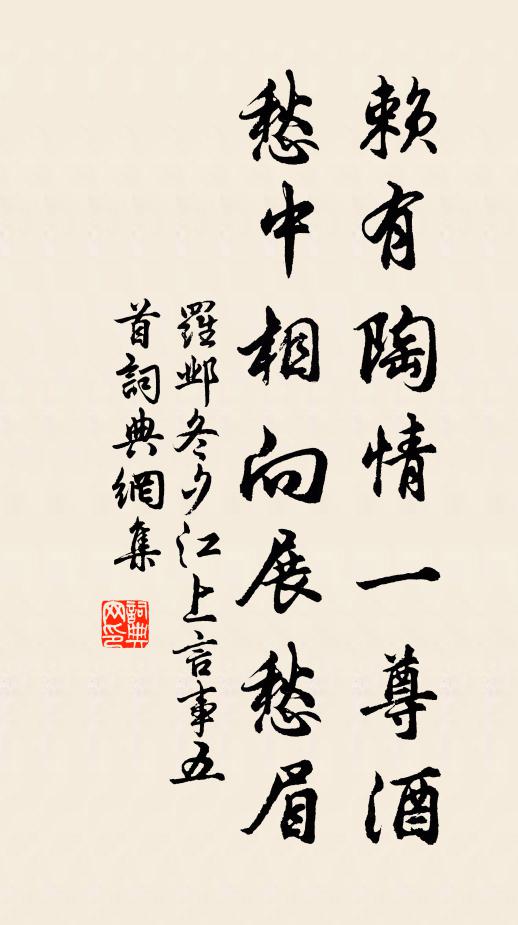 賴有陶情一尊酒
愁中相向展愁眉
羅鄴冬夕江上言事五
首詞典網集
詞典
网印